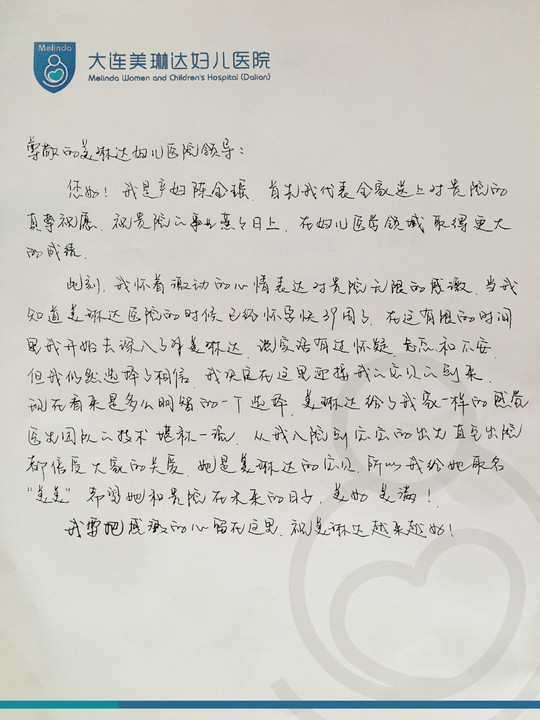 Melinda
大连美琳达妇儿医院
Melinda Women and Children's Hospital (Dalian)
尊敬的美琳达妇儿医院领导:
您好!我是产妇陈金瑶,首先我代表全家送上对贵院的
真挚祝愿,祝贵院的事业蒸蒸日上,在妇儿医学领域取得更大
的成绩。
此刻,我怀着激动的心情表达对贵院无限的感激,当我
知道美琳达医院的时候已经怀孕快39周了,在这有限的时间
里我开始去深入了解美琳达,说实话有过怀疑 忐忑和不安,
但我仍然选择了相信,我决定在这里迎接我的宝贝的到来,
现在看来是多么明智的一个选择,美琳达给了我家一样的感觉
医生团队的技术堪称一流,从我入院到宝宝的出生直至出院
都倍受大家的关爱,她是美琳达的宝贝,所以我给她取名
“美美” 希望她和贵院在未来的日子,美好美满!
我要把感激的心留在这里,祝美琳达越来越好!